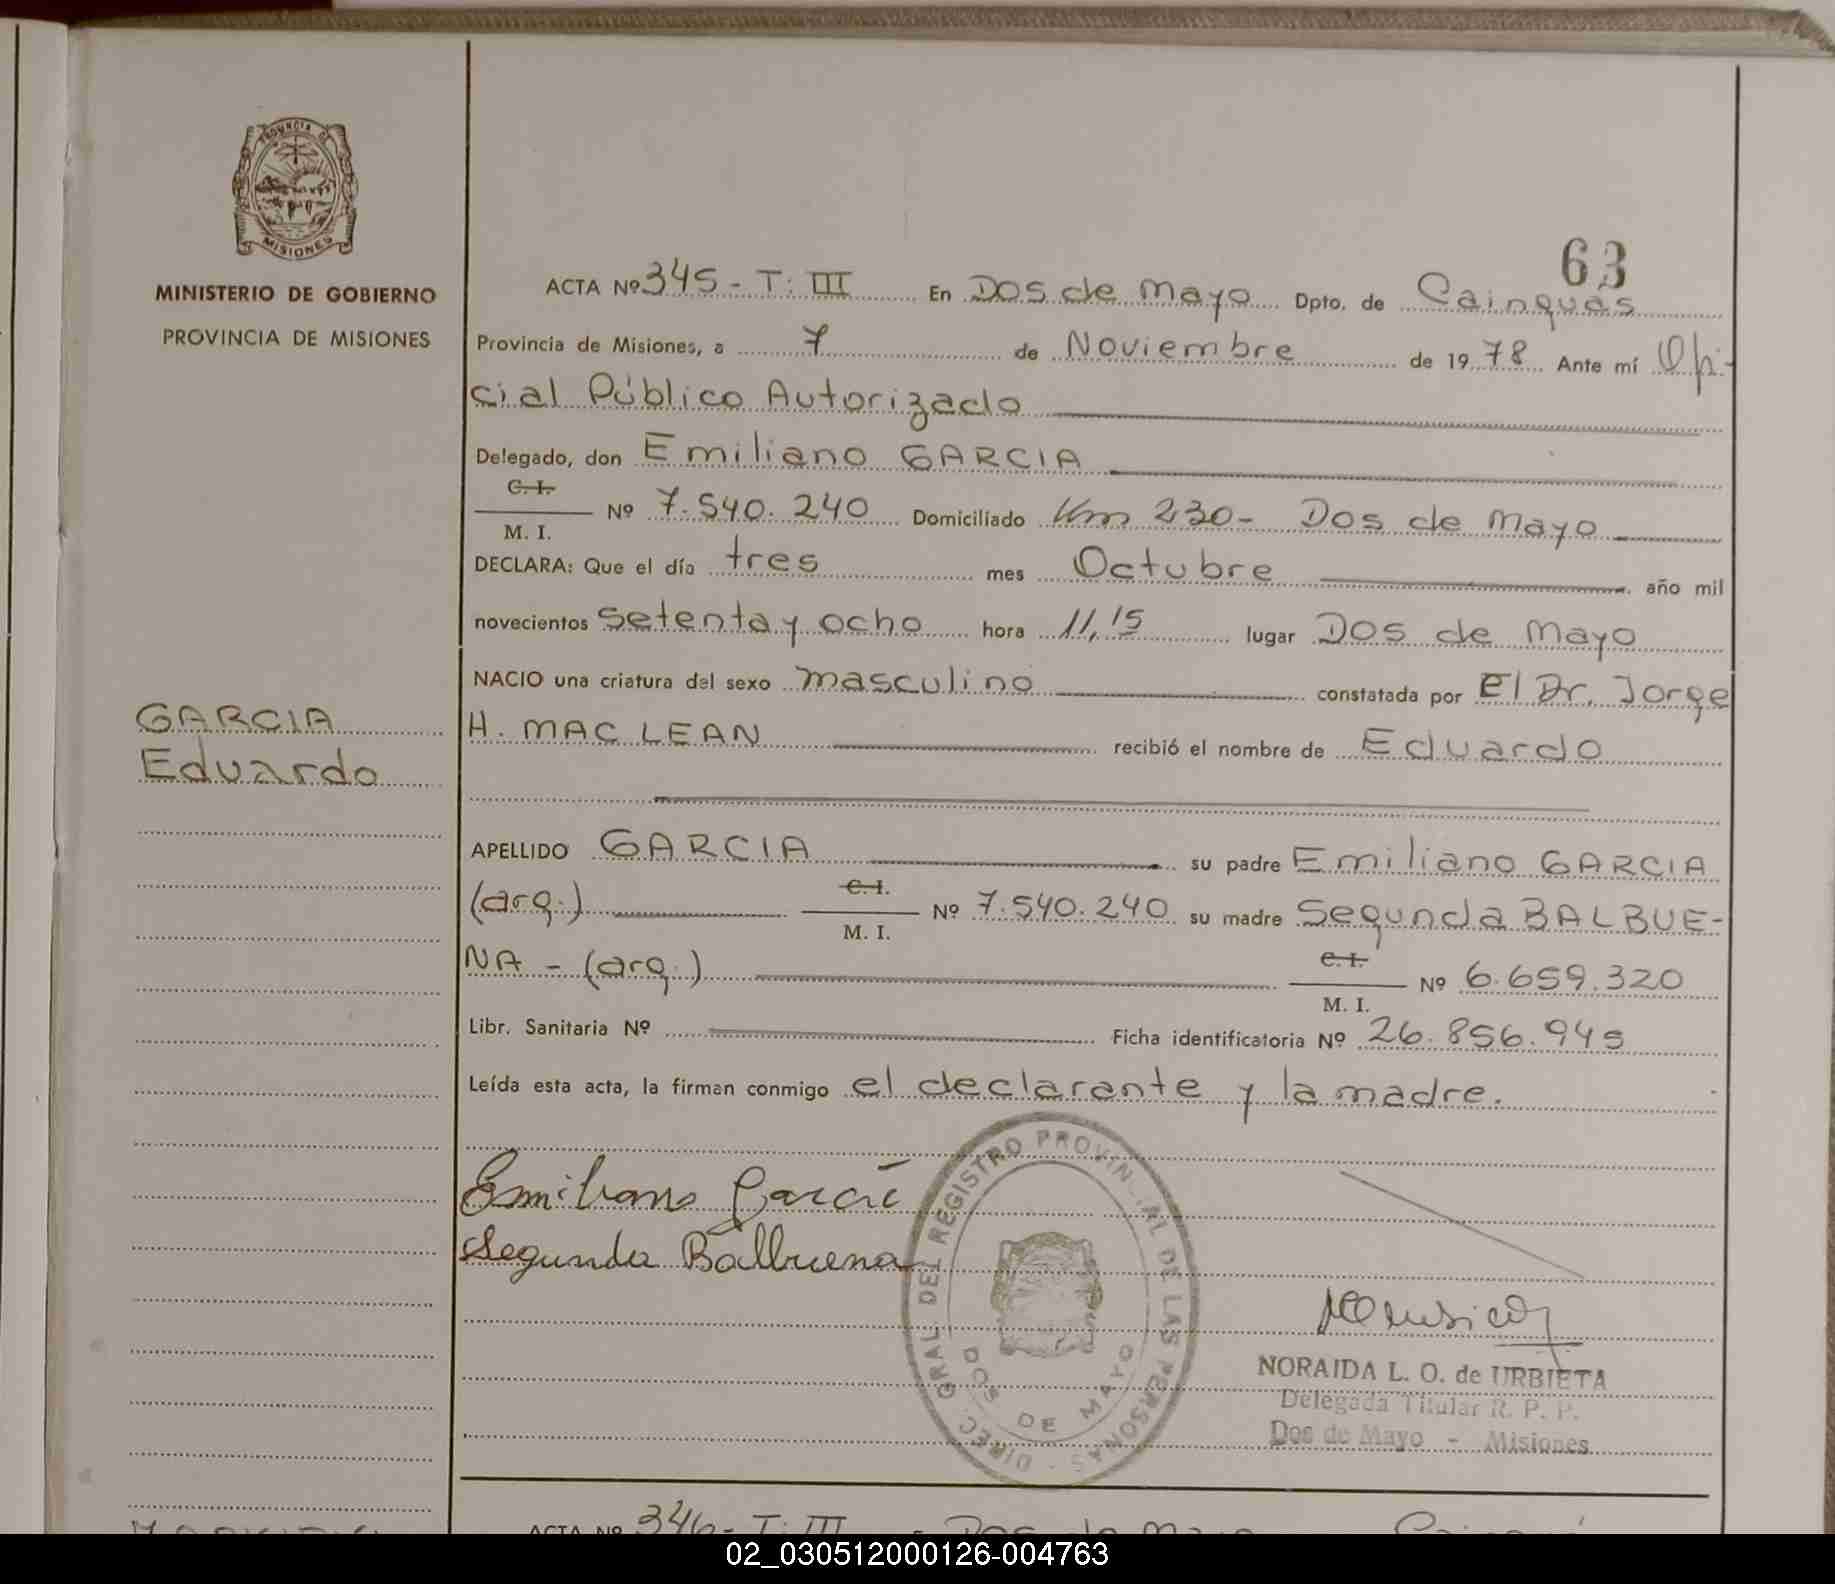 PROVINCIA DE
MISIONES
MINISTERIO DE GOBIERNO
PROVINCIA DE MISIONES
GARCIA
Eduardo
63
ACTA Nº 345 - T: III En Dos de Mayo Dpto. de Cainguás
Provincia de Misiones, a 7 de Noviembre de 1978 Ante mí Ofi-
cial Público Autorizado
Delegado, don Emiliano GARCIA
C. I.
M. I. Nº 7.540.240 Domiciliado Km 230 - Dos de Mayo
DECLARA: Que el día tres mes Octubre año mil
novecientos setenta y ocho hora 11,15 lugar Dos de Mayo
NACIO una criatura del sexo masculino constatada por El Dr. Jorge
H. MAC LEAN recibió el nombre de Eduardo
APELLIDO GARCIA su padre Emiliano GARCIA
(arg.) C. I. M. I. Nº 7.540.240 su madre Segunda BALBUE-
NA - (arg.) C. I. M. I. Nº 6.659.320
Libr. Sanitaria Nº Ficha identificatoria Nº 26.856.945
Leída esta acta, la firman conmigo el declarante y la madre.
Emiliano Garcia
Segunda Balbuena
DIREC. GRAL. DEL REGISTRO PROVINCIAL DE LAS PERSONAS -
DOS DE MAYO
NORAIDA L. O. de URBIETA
Delegada Titular R. P. P.
Dos de Mayo - Misiones
ACTA Nº 346 - T: III Dos de Mayo
02_030512000126-004763